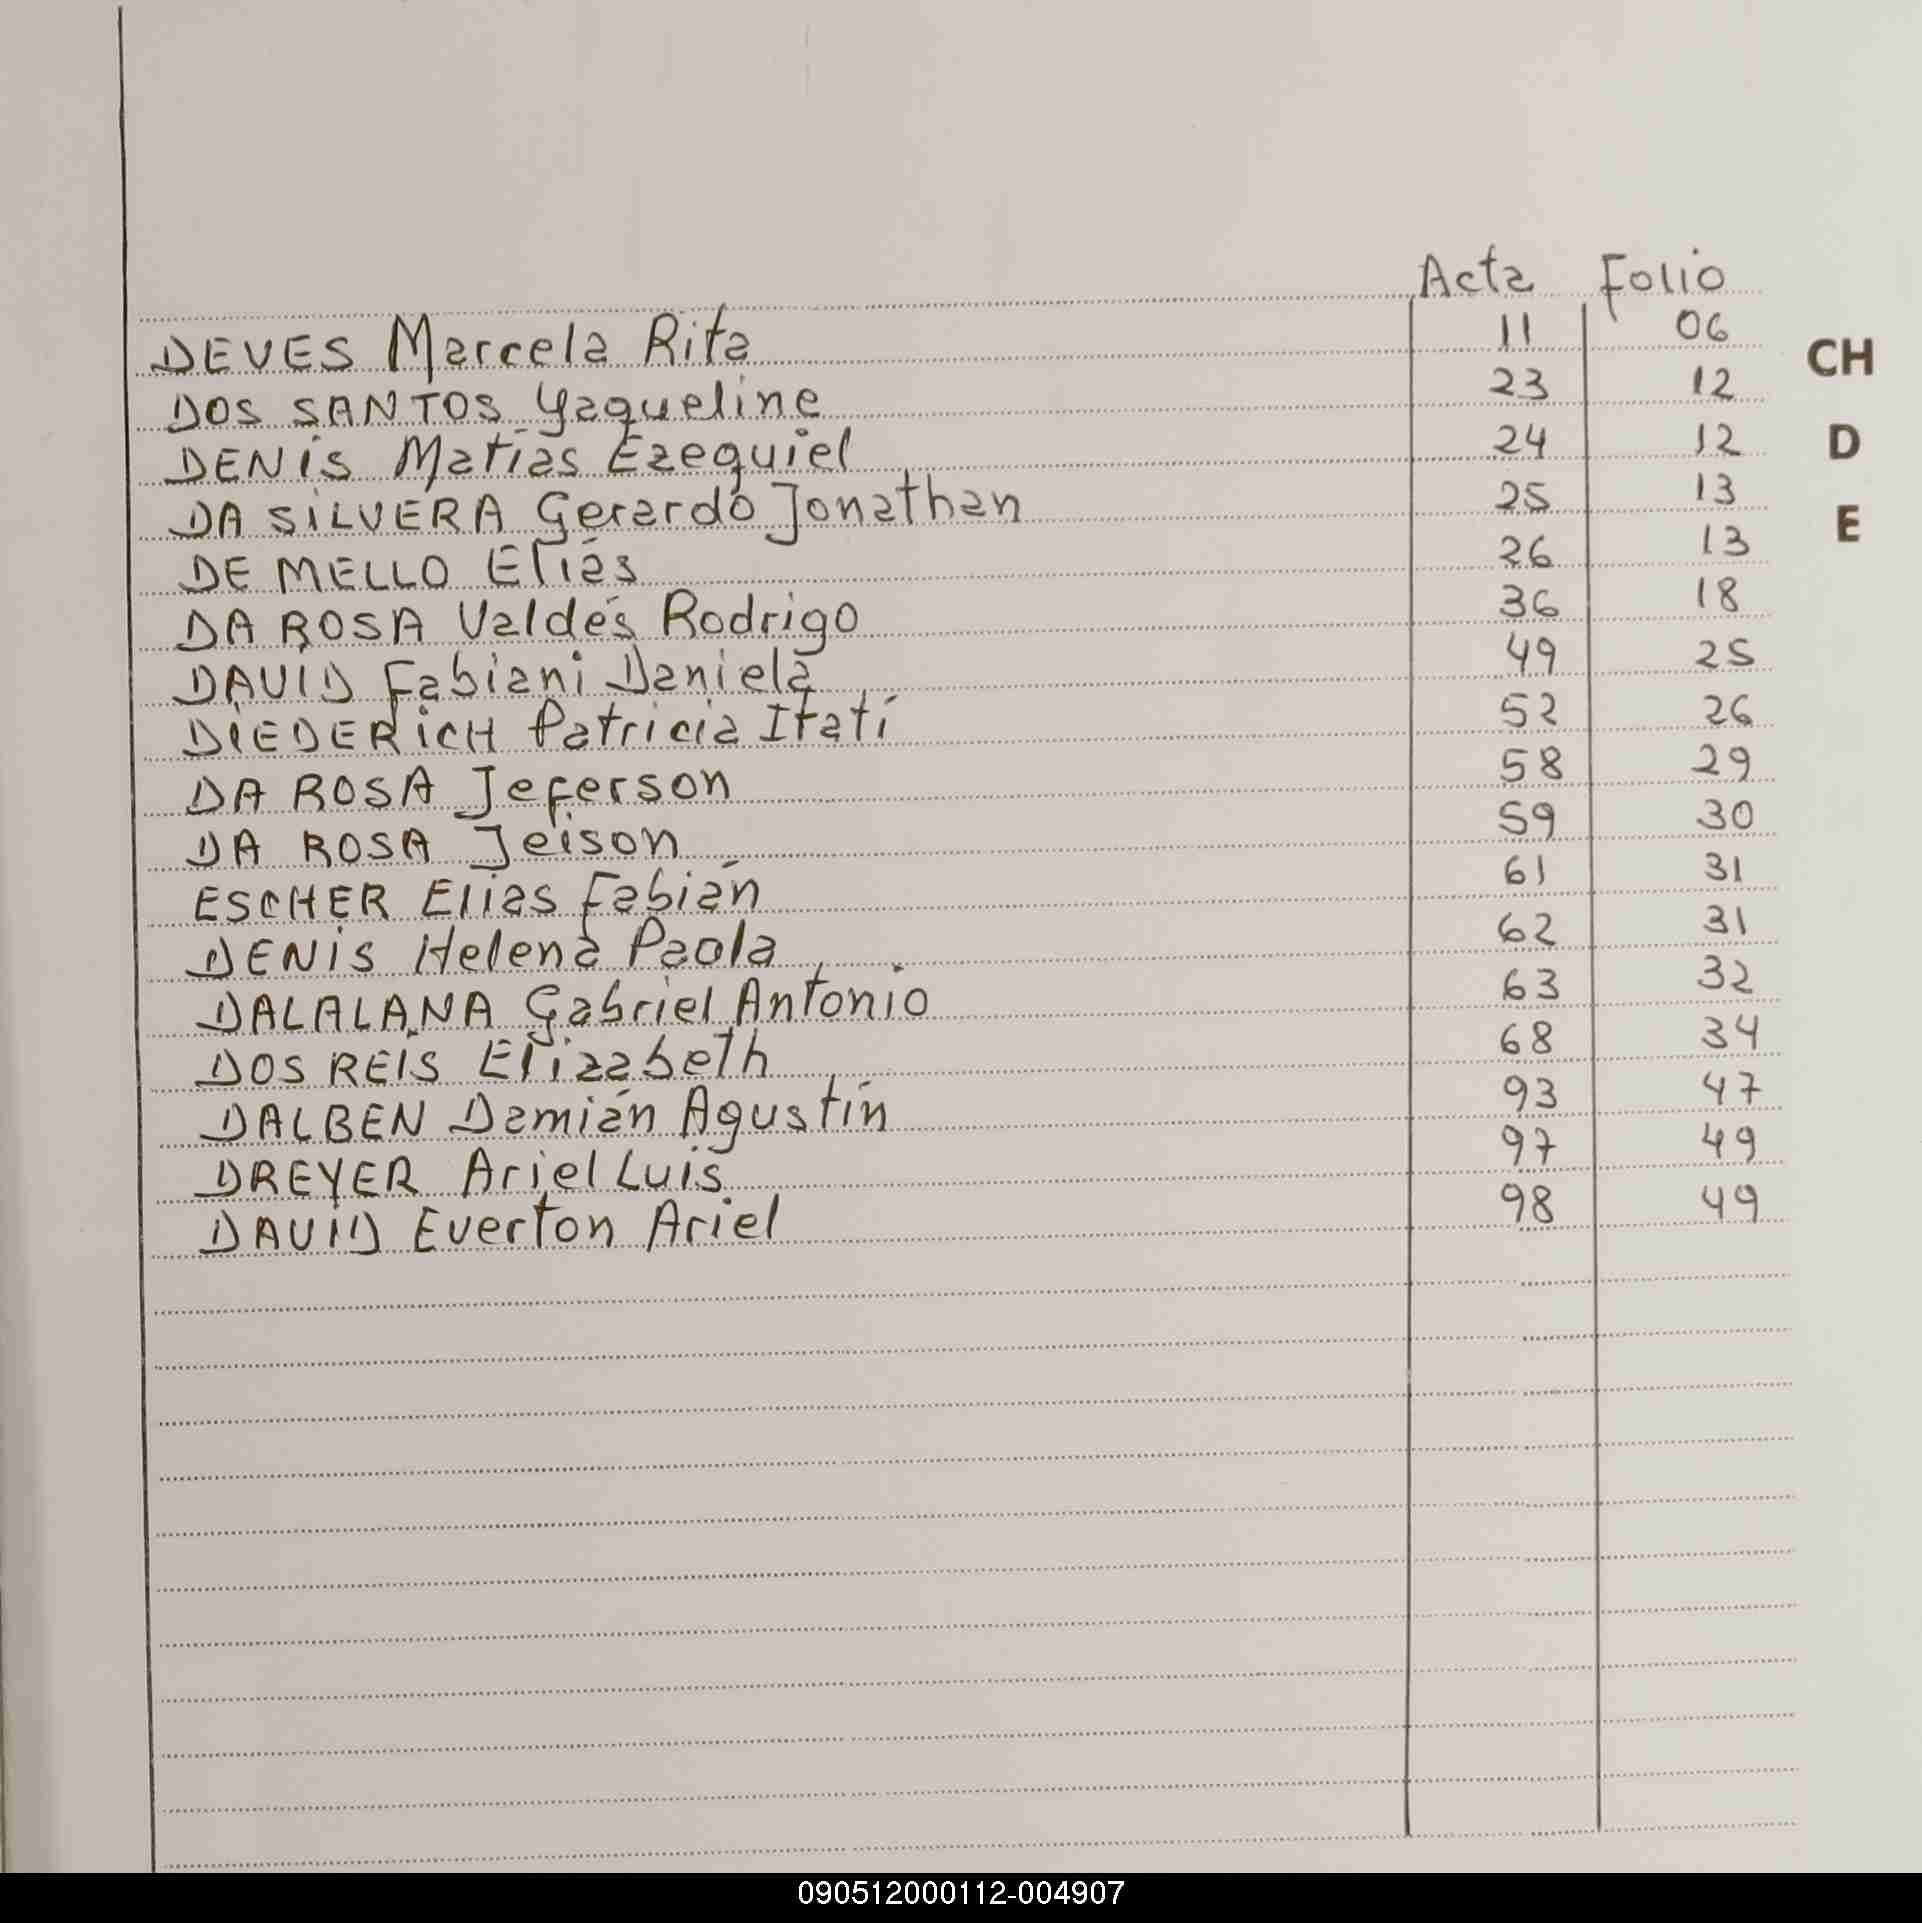 Acta Folio
DEVES Marcela Rita 11 06
DOS SANTOS Yaqueline 23 12
DENIS Matías Ezequiel 24 12
DA SILVERA Gerardo Jonathan 25 13
DE MELLO Elías 26 13
DA ROSA Valdés Rodrigo 36 18
DAVID Fabiani Daniela 49 25
DIEDERICH Patricia Itatí 52 26
DA ROSA Jeferson 58 29
DA ROSA Jeison 59 30
ESCHER Elias Fabián 61 31
DENIS Helena Paola 62 31
DALALANA Gabriel Antonio 63 32
DOS REIS Elizabeth 68 34
DALBEN Damián Agustín 93 47
DREYER Ariel Luis 97 49
DAVID Everton Ariel 98 49
CH
D
E
090512000112-004907